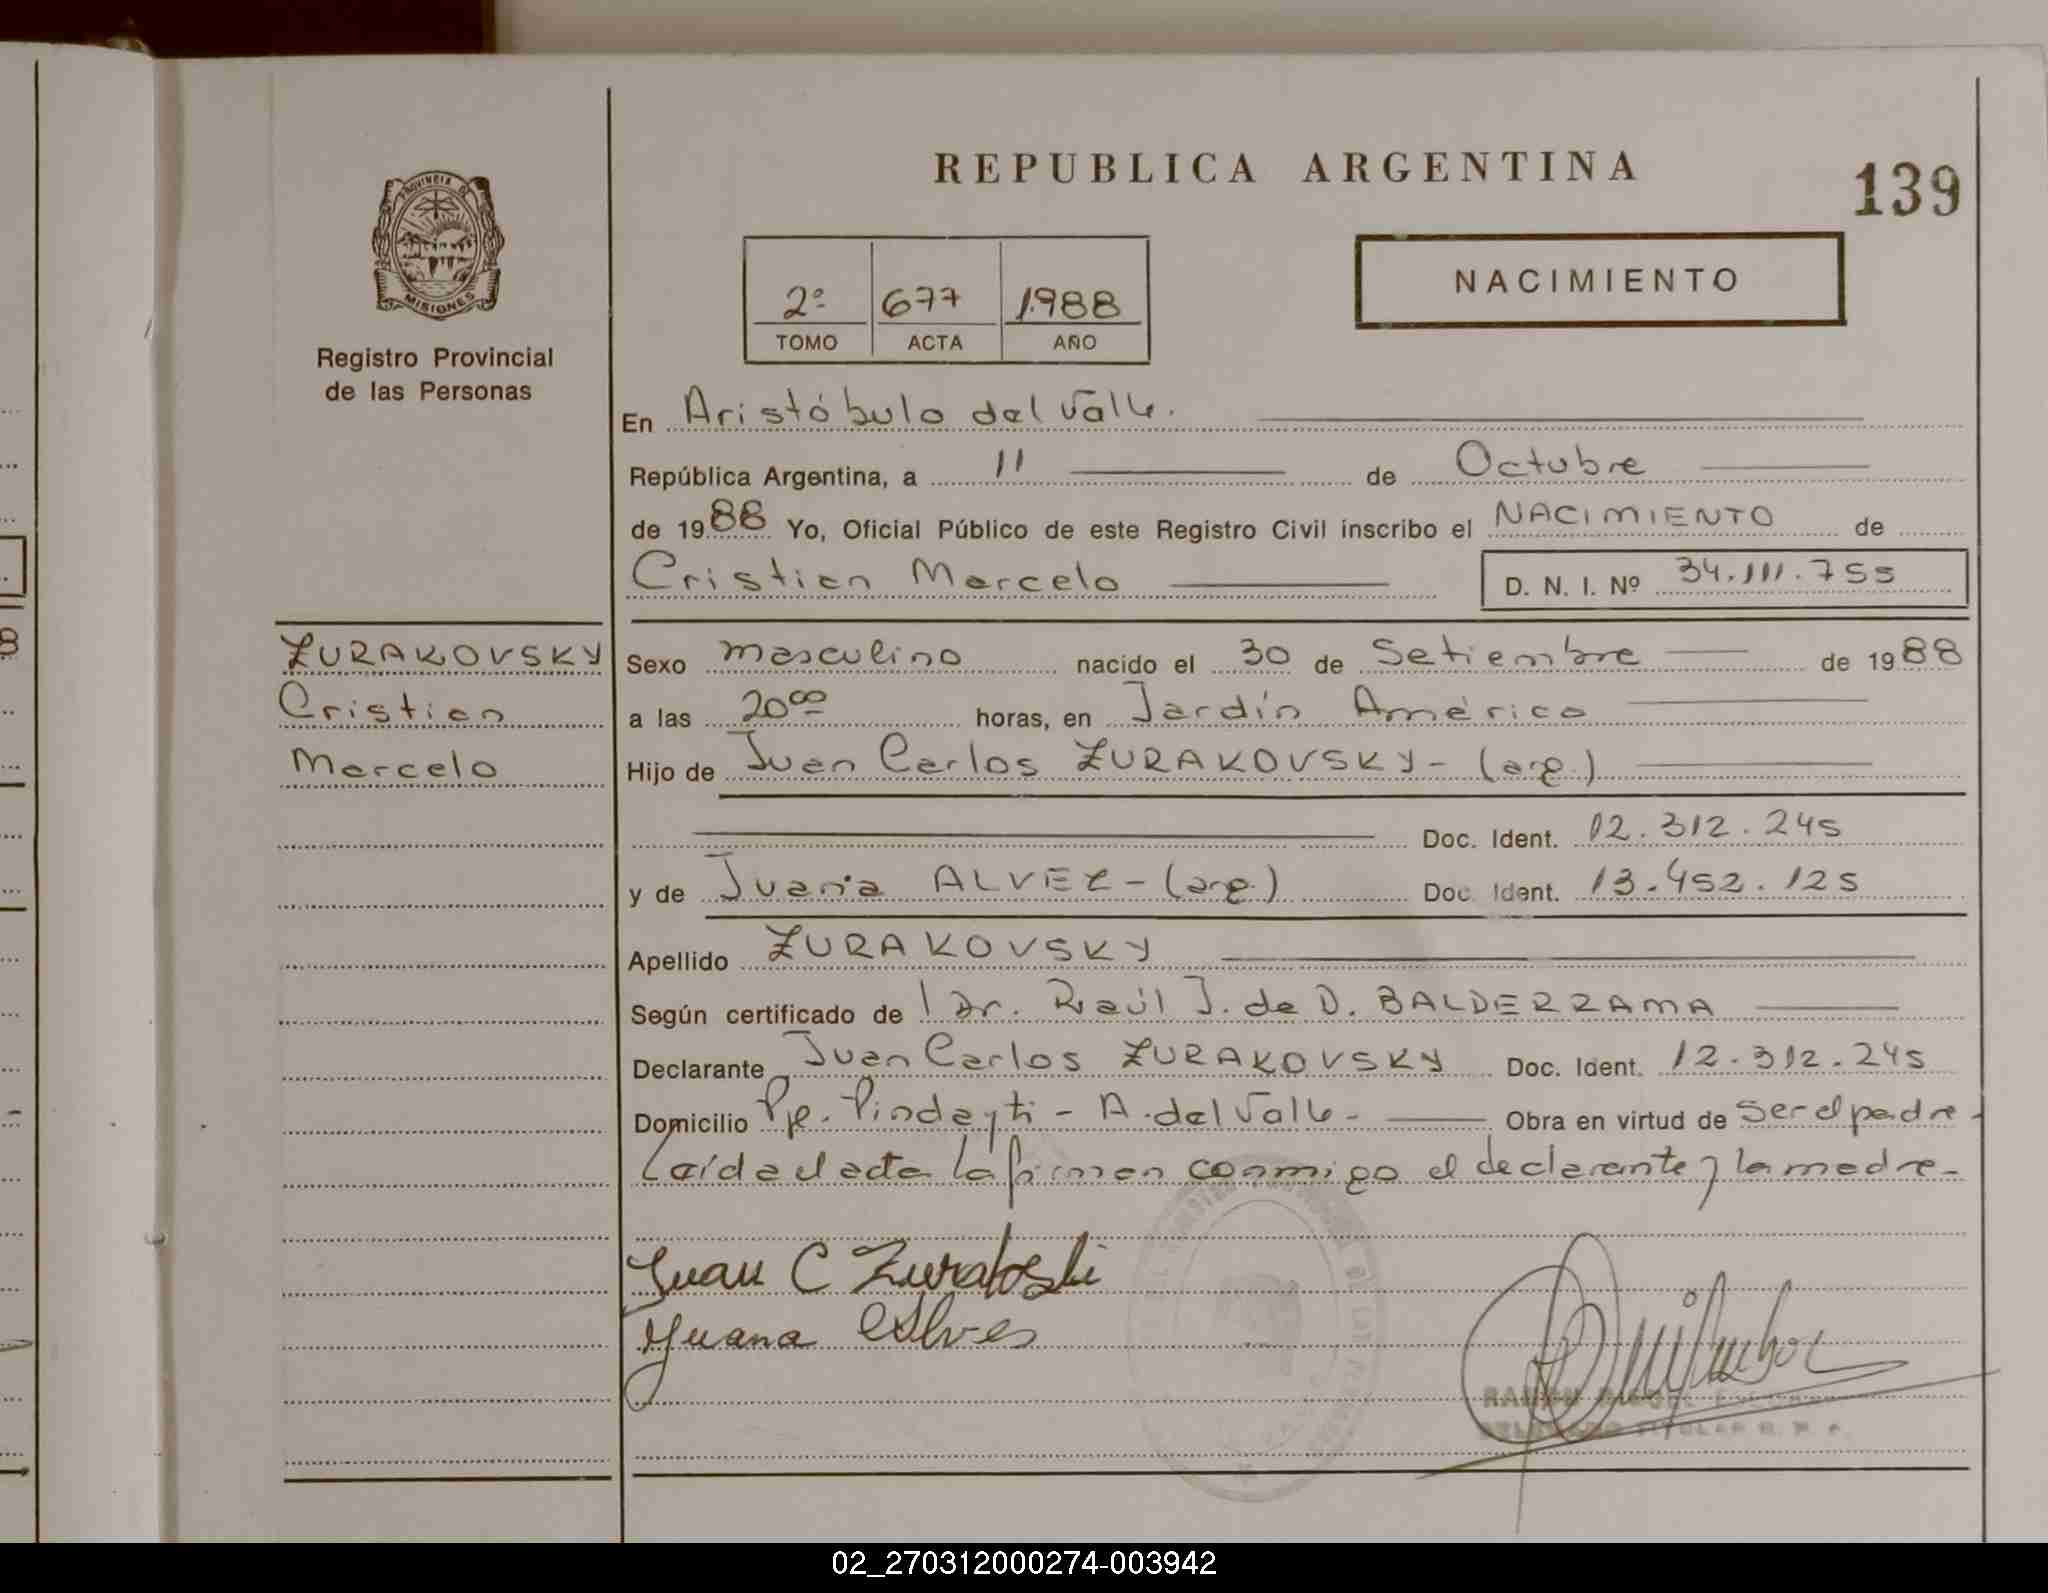 REPUBLICA ARGENTINA
139
PROVINCIA DE
MISIONES
Registro Provincial
de las Personas
2º 677 1988
TOMO ACTA AÑO
NACIMIENTO
En Aristóbulo del Valle.
República Argentina, a 11 de Octubre
de 1988 Yo, Oficial Público de este Registro Civil inscribo el NACIMIENTO de
Cristian Marcelo D. N. I. Nº 34.111.755
ZURAKOVSKY
Cristian
Marcelo
Sexo masculino nacido el 30 de Setiembre de 1988
a las 20⁰⁰ horas, en Jardín América
Hijo de Juan Carlos ZURAKOVSKY- (arg.)
Doc. Ident. 12.312.245
y de Juana ALVEZ - (arg.) Doc. Ident. 13.452.125
Apellido ZURAKOVSKY
Según certificado de Dr. Raúl J. de D. BALDERRAMA
Declarante Juan Carlos ZURAKOVSKY Doc. Ident. 12.312.245
Domicilio Pje. Pindayti - A. del Valle - Obra en virtud de ser el padre -
Leída el acta la firman conmigo el declarante y la madre -
Juan C
Juana Alves
RAMON MIGUEL
DELEGADO TITULAR R. P. P.
02_270312000274-003942